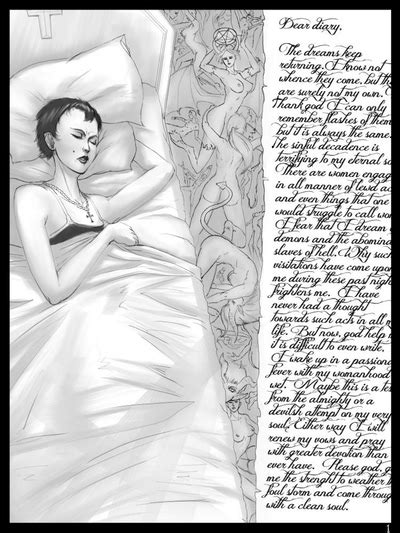 Dear diary.
The dreams keep
returning. I know not
whence they come, but th
are surely not my own. O
thank god I can only
remember flashes of them
but it is always the same.
The sinful decadence is
terrifying to my eternal so
There are women engag
in all manner of lewd ac
and even things that one
would struggle to call wom
I fear that I dream o
demons and the abomina
slaves of hell. Why such
visitations have come upon
me during these past nigh
frightens me. I have
never had a thought
towards such acts in all m
life. But now, god help m
it is difficult to even write.
I wake up in a passiona
fever with my womanhood
wet. Maybe this is a tes
from the almighty or a
devilish attempt on my very
soul. Either way I will
renew my vows and pray
with greater devotion than
ever have. Please god, g
me the strenght to weather t
foul storm and come throug
with a clean soul.
1